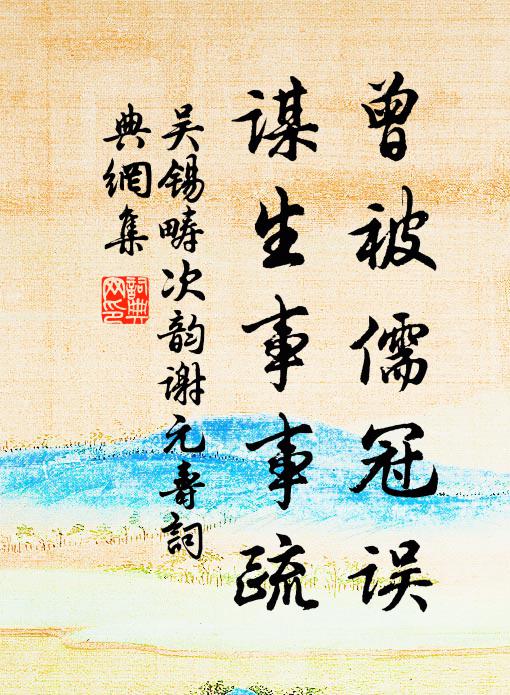 曾被儒冠误
谋生事事疏
吴锡畴次韵谢元寿词
典網集
詞典网印